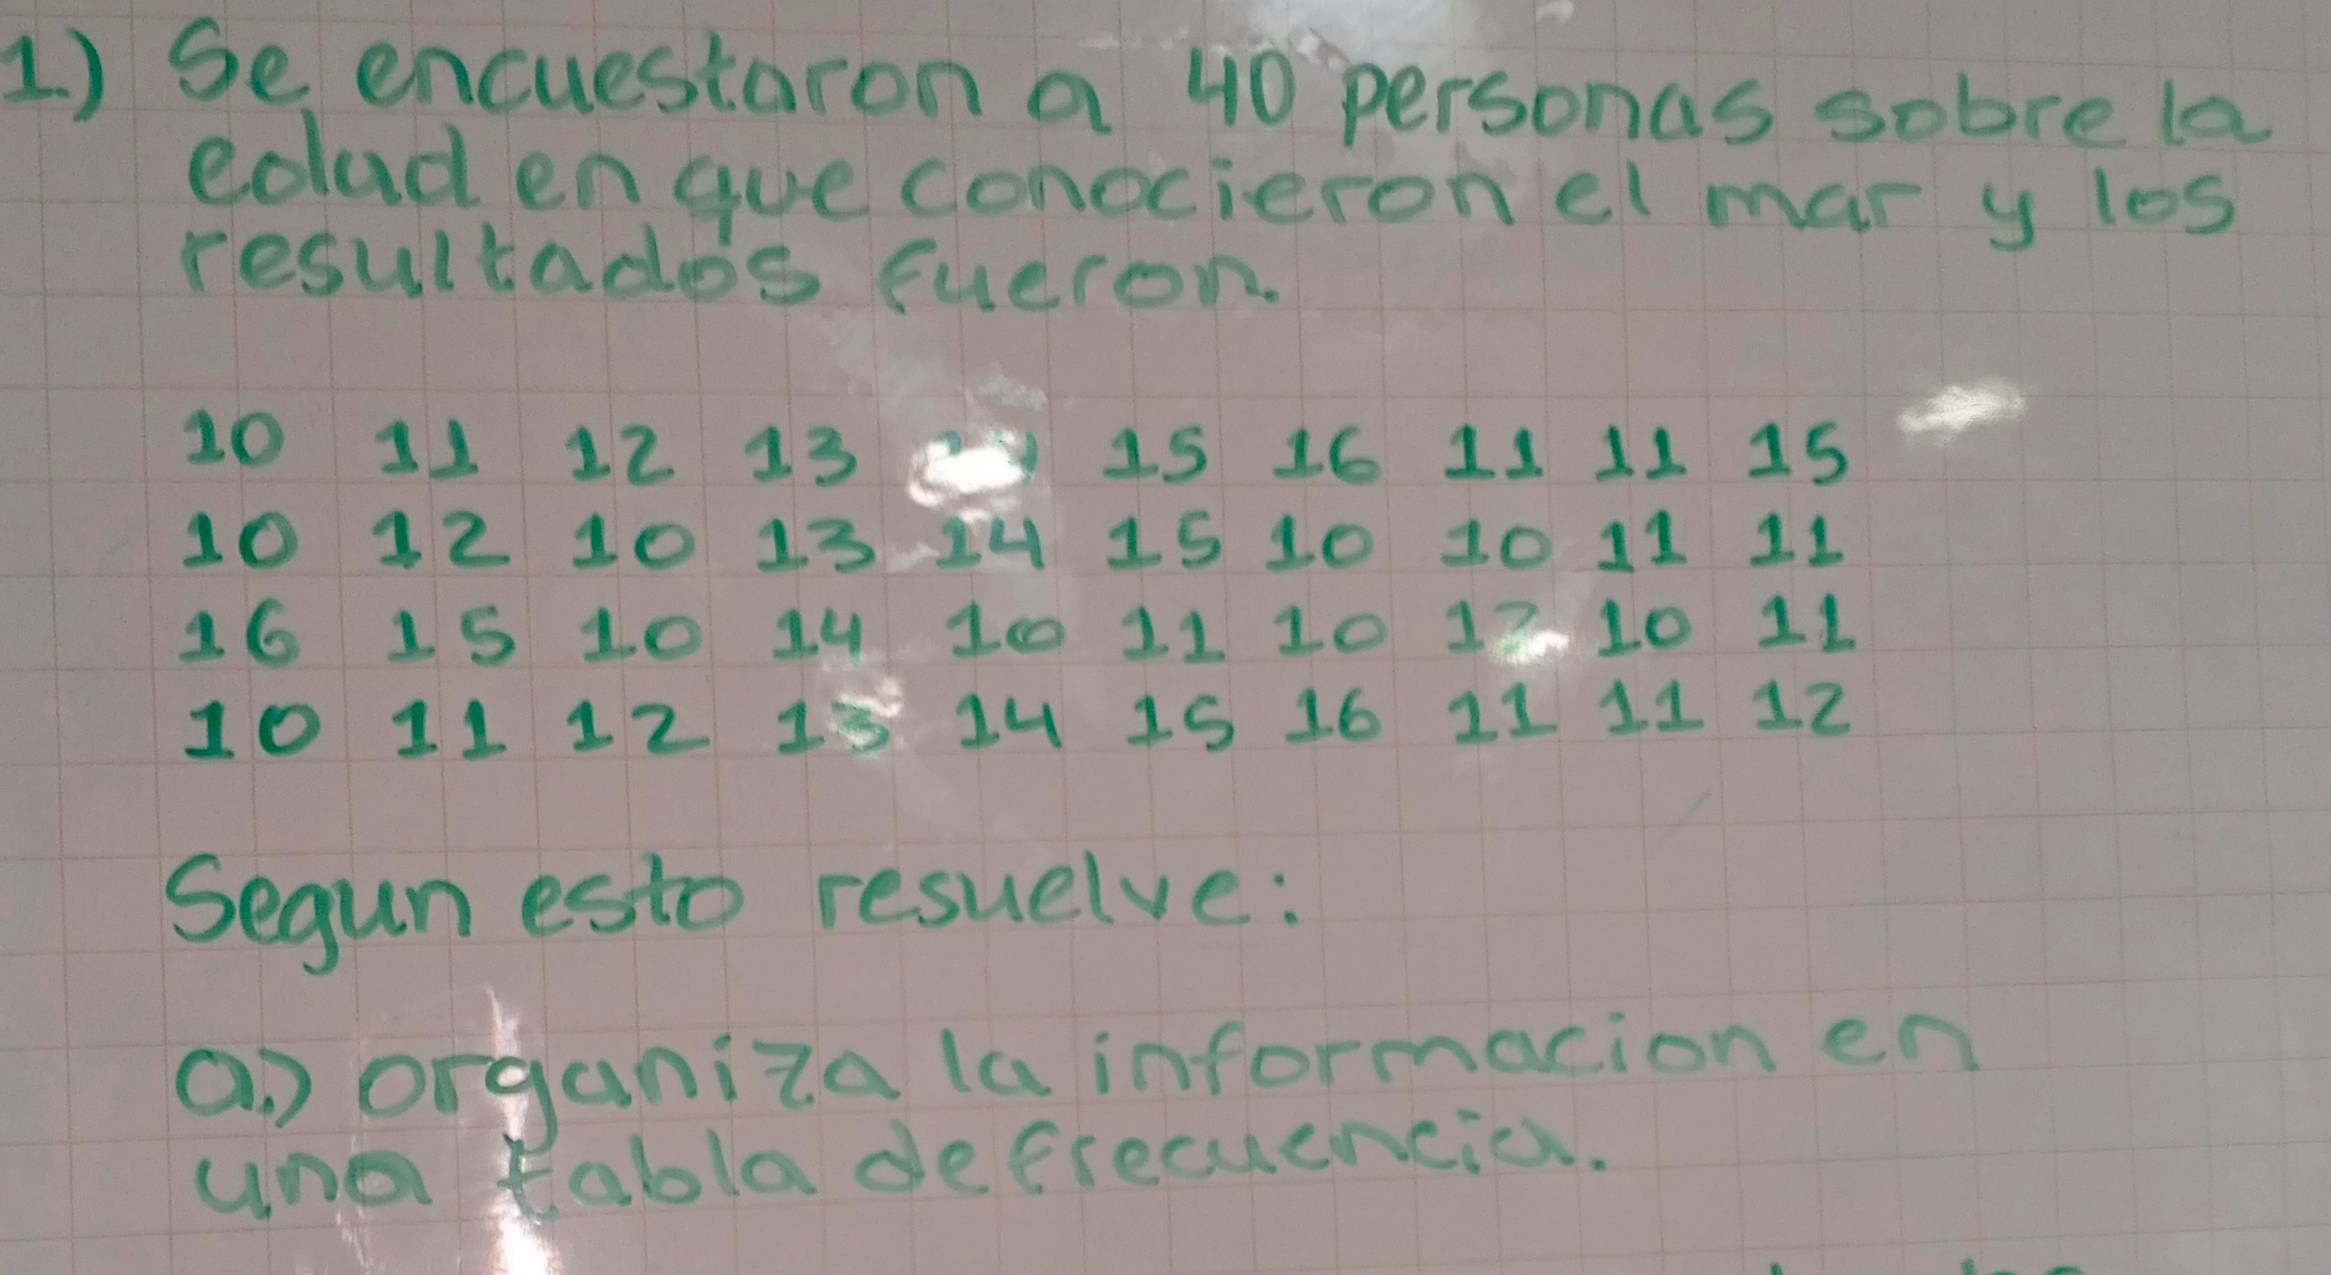 1.) Se encuestaron a 40 personas sobre la
edad en que conocieron el mar y los
resultados fueron.
10 11 12 13 15 16 11 11 15
10 12 10 13 14 15 10 10 11 11
16 15 10 14 10 11 10 12 10 11
10 11 12 13 14 15 16 11 11 12
Segun esto resuelve:
a.) organiza la informacion en
una tabla de frecuencia.